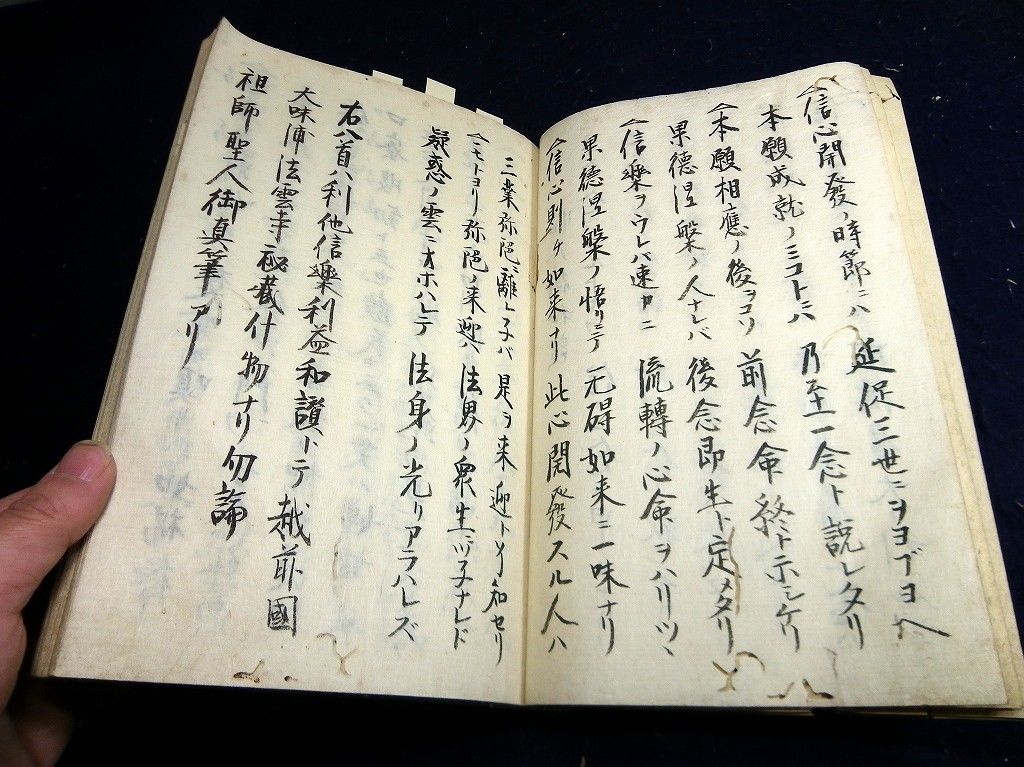 〽信心開發ノ時節ニハ 延促三世ニヲヨブヨヘ
本願成就ノミコトニハ 乃至一念ト説レタリ
〽本願相應ノ後ヲコソ 前念命終ト示シケリ
果德涅槃ノ人ナレバ 後念即生ト定メタリ
〽信樂ヲウレバ速カニ 流轉ノ心命ヲハリツヽ
果德涅槃ノ悟リニテ 无碍如来ニ一味ナリ
〽信心則チ如来ナリ 此心開發スル人ハ
三業弥陀ニ離レ子バ 是ヲ来迎ト名セリ
〽モトヨリ弥陀ノ来迎ハ 法界ノ衆生ニヅ子ナレド
疑惑ノ雲ニオホハレテ 法身ノ光リアラハレズ
右八首ハ利他信樂利益和讃トテ越前國
大味浦法雲寺秘蔵什物ナリ勿論
祖師聖人御真筆アリ